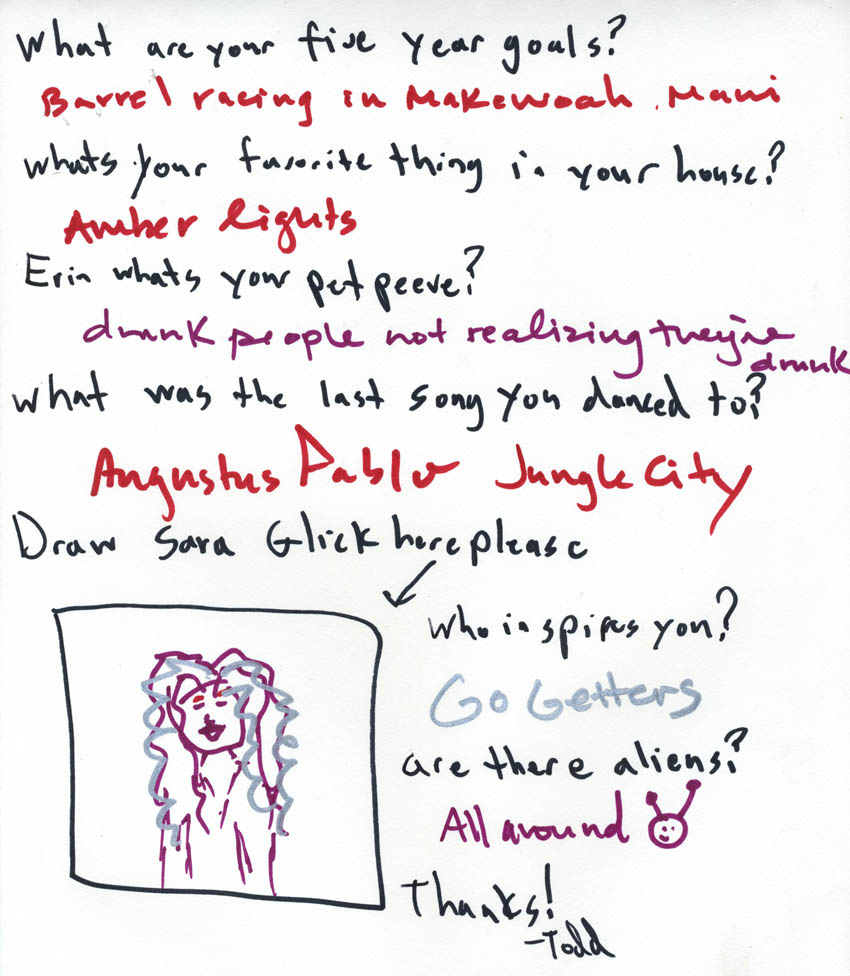 What are your five year goals?
Barrel racing in Makewoah, Maui
whats your favorite thing in your house?
Amber lights
Erin whats your pet peeve?
drunk people not realizing they're
drunk
what was the last song you danced to?
Augustus Pablo Jungle City
Draw Sara Glick here please
who inspires you?
Go Getters
are there aliens?
All around
Thanks!
-Todd